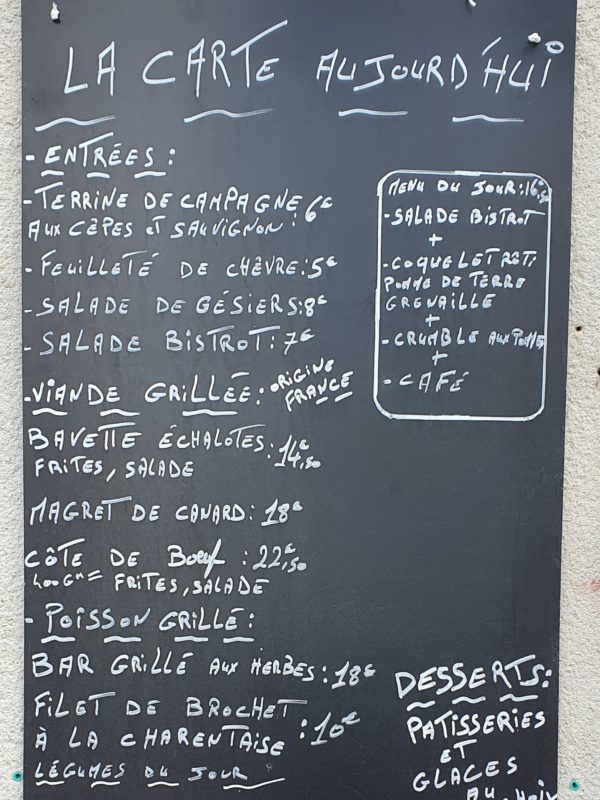 LA CARTE AUJOURD'HUI
- ENTRÉES :
- TERRINE DE CAMPAGNE
AUX CÊPES ET SAUVIGNON : 6€
- FEUILLETÉ DE CHÈVRE : 5€
- SALADE DE GÉSIERS : 8€
- SALADE BISTROT : 7€
- VIANDE GRILLÉE : ORIGINE
FRANCE
BAVETTE ÉCHALOTES : 14,50€
FRITES, SALADE
MAGRET DE CANARD : 18€
CÔTE DE BOEUF : 22,50€
400GR = FRITES, SALADE
- POISSON GRILLÉ :
BAR GRILLÉ AUX HERBES : 18€
FILET DE BROCHET
À LA CHARENTAISE : 10€
LÉGUMES DU JOUR
MENU DU JOUR : 16,50
- SALADE BISTROT
+
- COQUELET RÔTI
POMME DE TERRE
GRENAILLE
+
- CRUMBLE AUX POMMES
+
- CAFÉ
DESSERTS :
PATISSERIES
ET
GLACES
AU